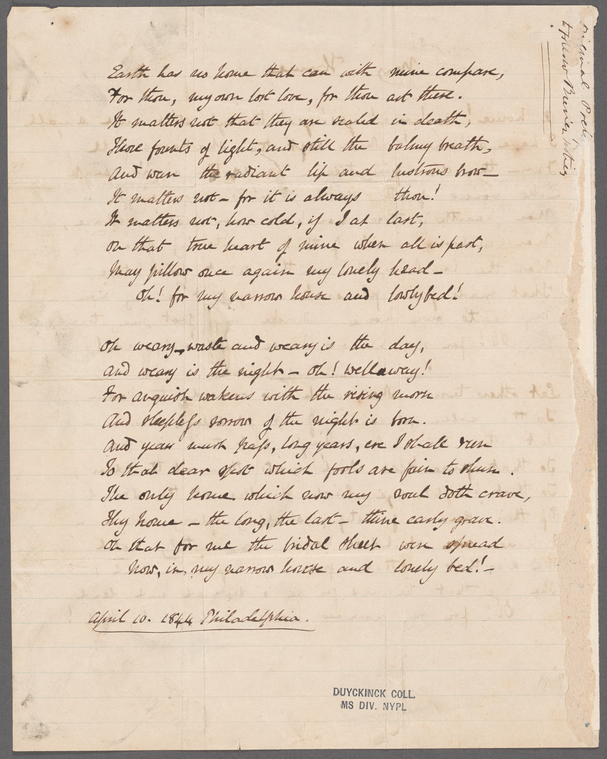 Earth has no home that can with mine compare,
For thou, my own lost love, for thou art there.
It matters not that they are sealed in death,
Those founts of light, and still the balmy breath,
And wan the radiant lip and lustrous brow—
It matters not – for it is always thou!
It matters not, how cold, if I at last,
On that true heart of mine when all is past,
May pillow once again my lonely head—
Oh! for my narrow house and lowly bed!
Oh weary, waste and weary is the day,
And weary is the night – oh! wellaway!
For anguish wakens with the rising morn
And sleepless sorrow of the night is born.
And years must pass, long years, ere I shall run
To that dear rest which fools are fain to shun.
The only home which now my soul doth crave,
Thy home – the long, the last – thine early grave.
Oh that for me the bridal sheet were spread
Now, in my narrow house and lonely bed! –
April 10. 1844 Philadelphia.
DUYCKINCK COLL.
MS DIV. NYPL